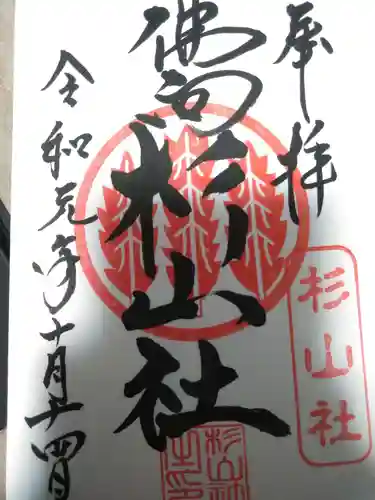 奉拝
佛向
杉山社
令和元年十月廿四日
杉山社